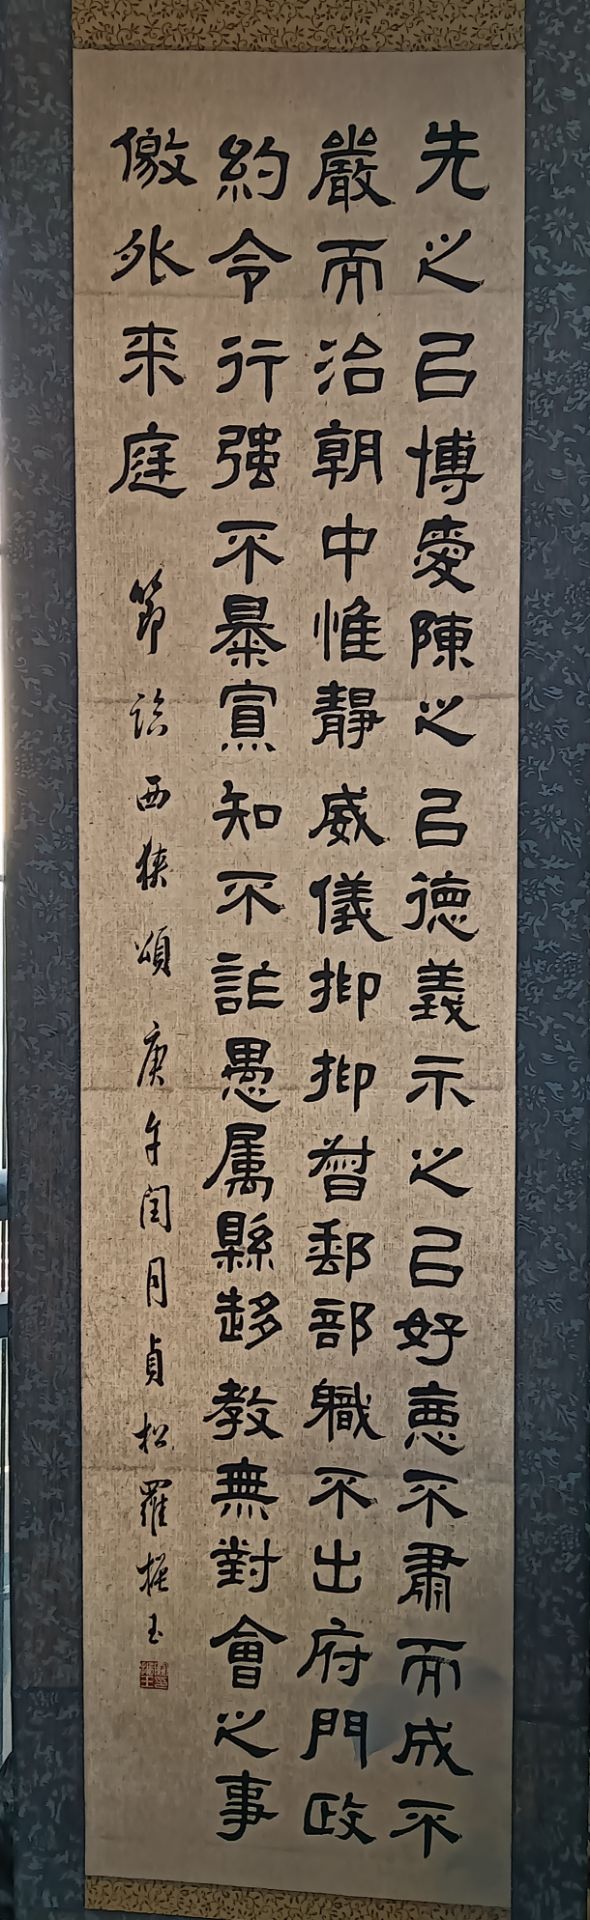 先之㠯博愛陳之㠯德義示之㠯好惡不肅而成不
嚴而治朝中惟靜威儀抑抑督郵部職不出府門政
約令行强不暴寡知不詐愚属縣趍教無對會之事
徼外来庭
節臨西狹頌庚午閏月貞松羅振玉